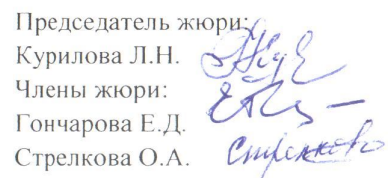 Председатель жюри:
Курилова Л.Н.
Члены жюри:
Гончарова Е.Д.
Стрелкова О.А. Стрелкова